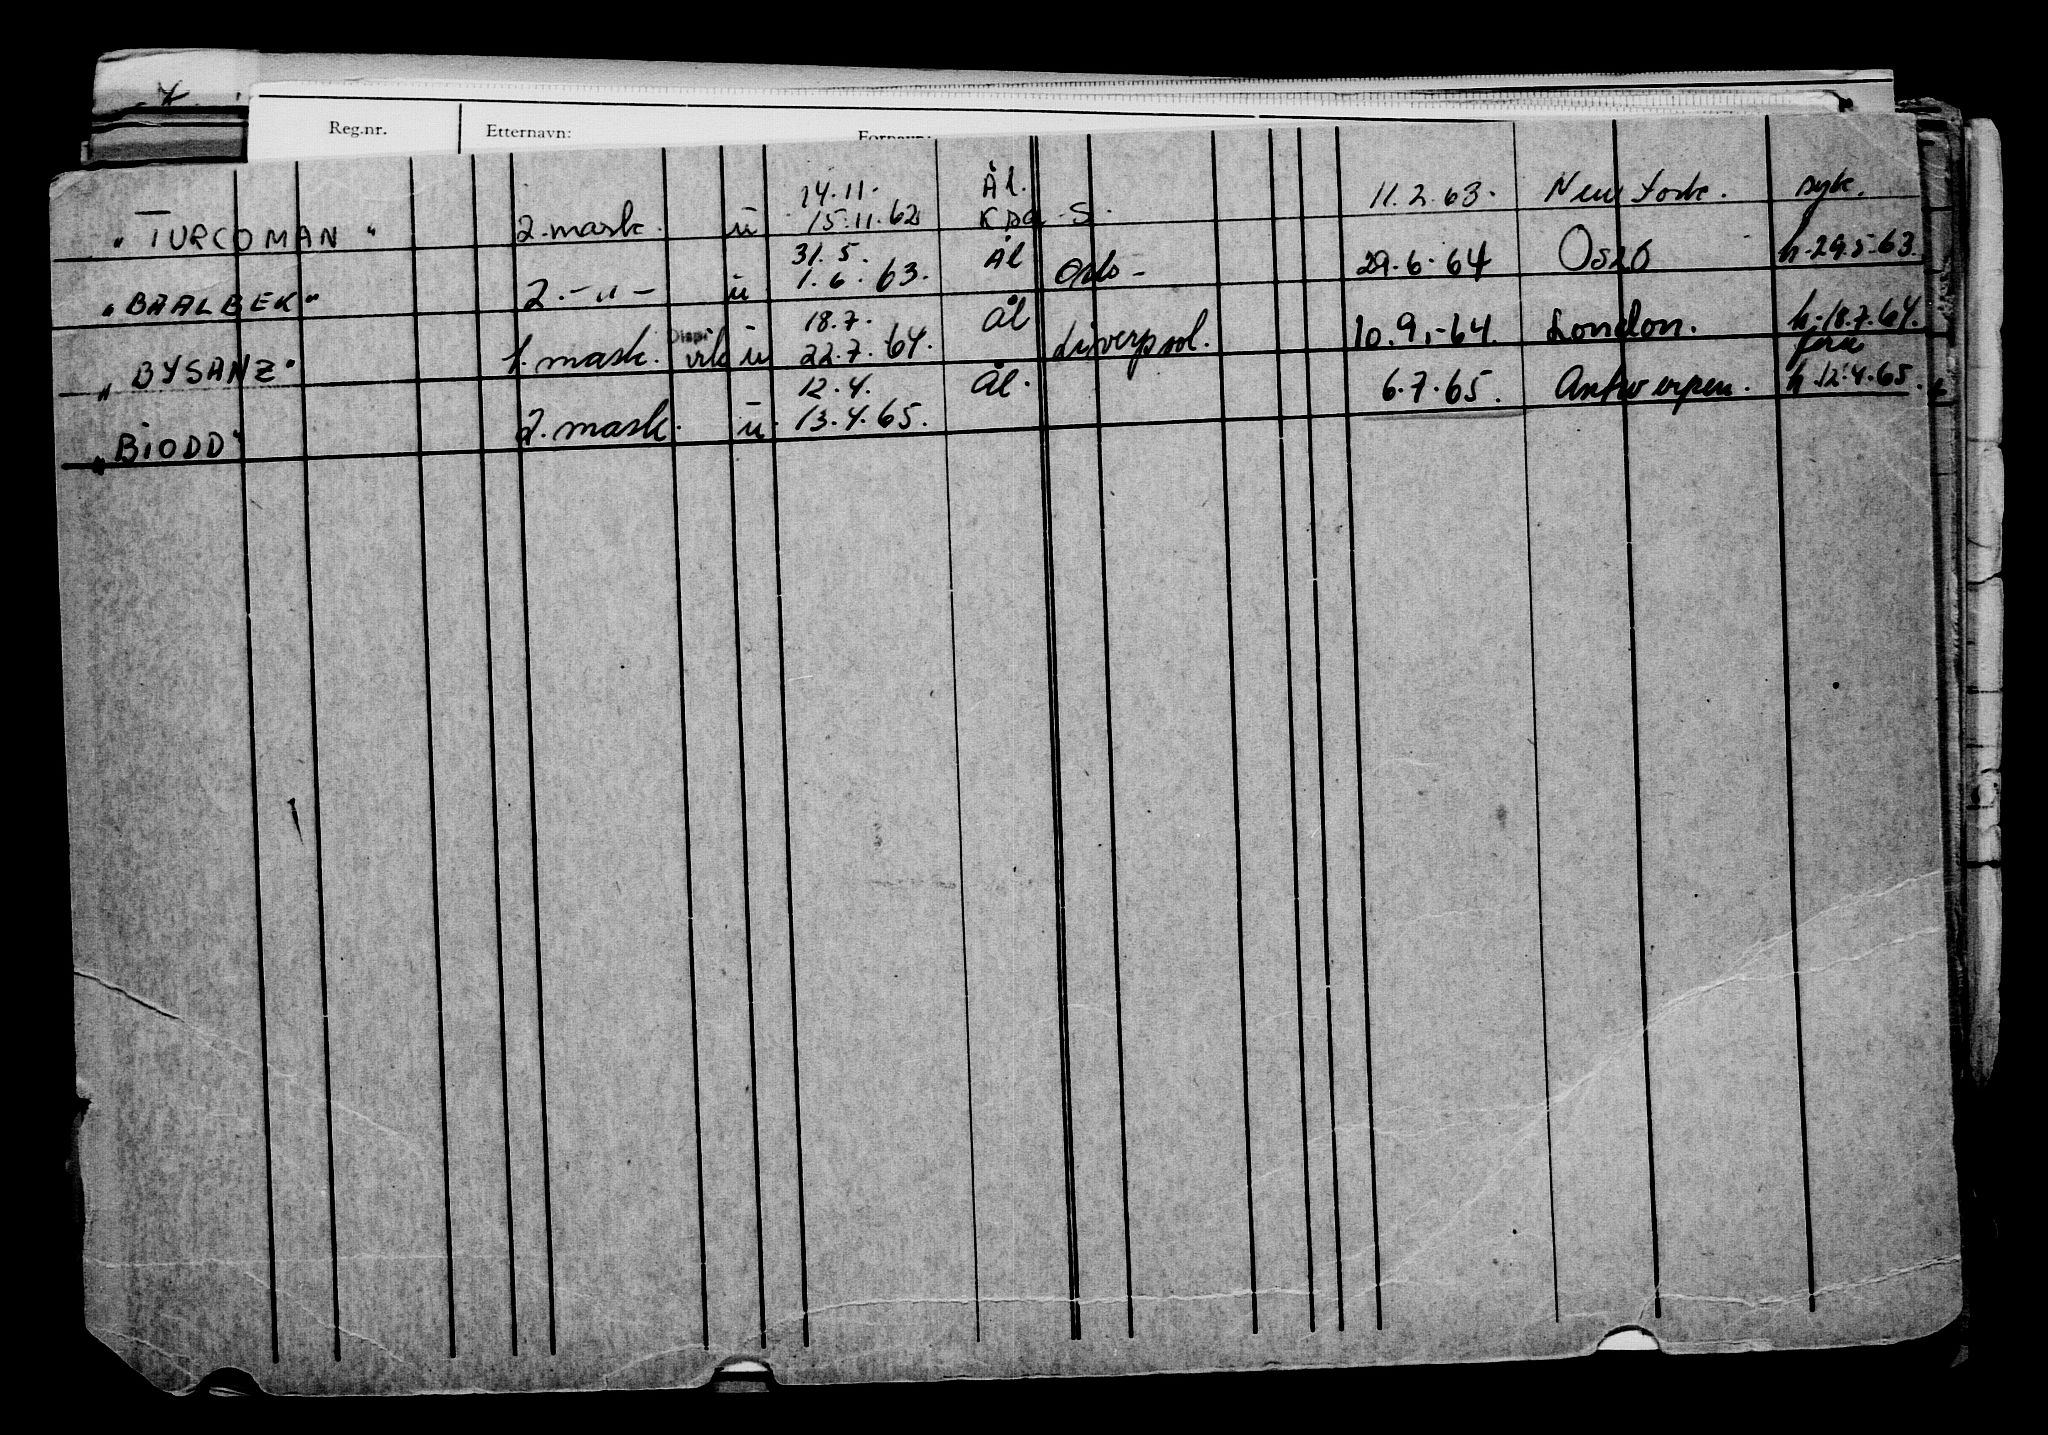 Reg.nr. Etternavn: Fornavn:
14.11. Ål. 11.2.63. New York. syk.
"TURCOMAN" 2. mask. ū 15.11.62 Kbg S.
31.5. Ål Oslo - 29.6.64 Oslo h. 29.5.63.
"BAALBEK" 2. -"- ū 1.6.63.
18.7. Ål Liverpool. 10.9.-64. London. h. 18.7.64.
"BYSANZ" 1. mask. Disp. vik ū 22.7.64. ferie
12.4. Ål. 6.7.65. Antwerpen. h. 12.4.65.
"BIODD" 2. mask. ū. 13.4.65.